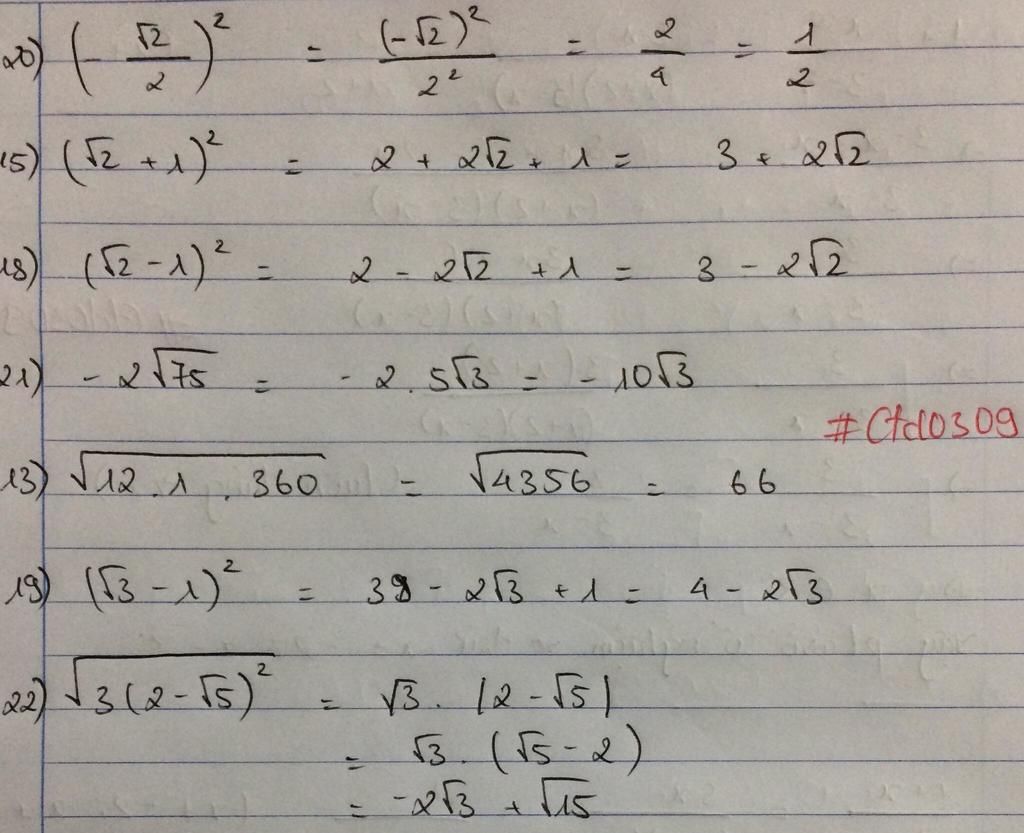 20) (- √2/2)² = (-√2)²/2² = 2/4 = 1/2
15) (√2 + 1)² = 2 + 2√2 + 1 = 3 + 2√2
18) (√2 - 1)² = 2 - 2√2 + 1 = 3 - 2√2
21) - 2√75 = - 2.5√3 = - 10√3
#Ctd0309
13) √(12.1.360) = √4356 = 66
19) (√3 - 1)² = 3 - 2√3 + 1 = 4 - 2√3
22) √(3(2-√5)²) = √3 . |2-√5|
= √3 . (√5 - 2)
= -2√3 + √15